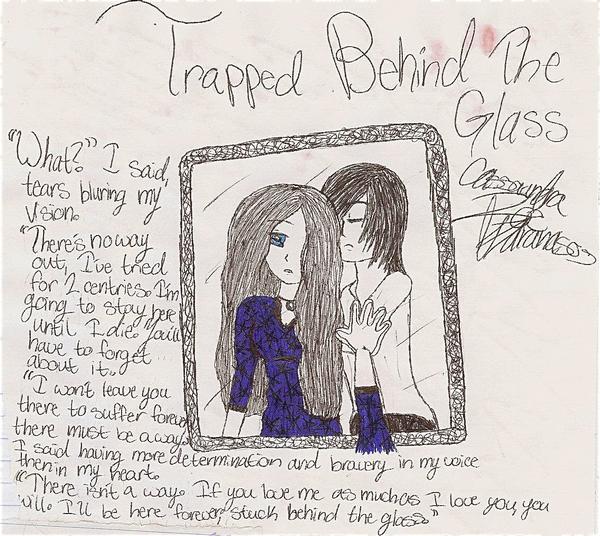 Trapped Behind The
Glass
"What?" I said,
tears bluring my
vision.
"There's no way
out, I've tried
for 2 centries. I'm
going to stay here
until I die. You'll
have to forget
about it.
"I won't leave you
there to suffer forever
there must be a way.
I said having more determination and bravery in my voice
then in my heart.
"There isn't a way. If you love me as much as I love you, you
will. I'll be here forever, stuck behind the glass."